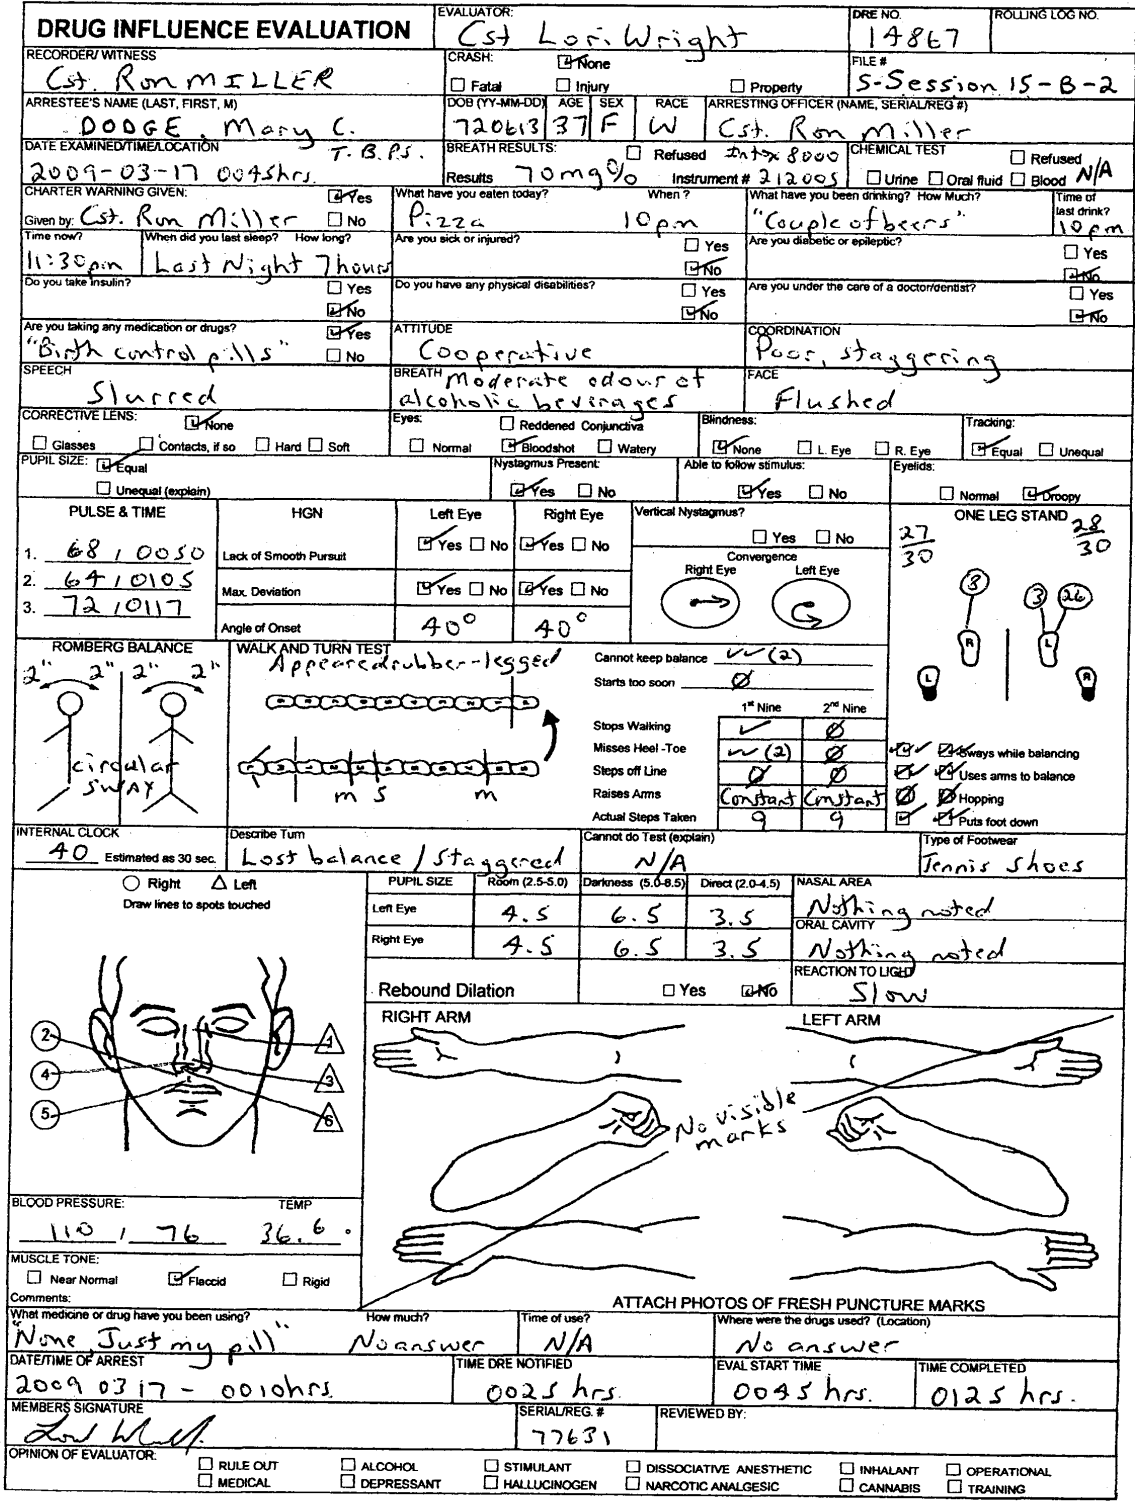 DRUG INFLUENCE EVALUATION
EVALUATOR:
Cst Lori Wright
DRE NO.
14867
ROLLING LOG NO.
RECORDER/ WITNESS
Cst. Ron MILLER
CRASH:
None
Fatal Injury Property
FILE #
S-Session 15-B-2
ARRESTEE'S NAME (LAST, FIRST, M)
DODGE, Mary C.
DOB (YY-MM-DD) AGE SEX RACE
720613 37 F W
ARRESTING OFFICER (NAME, SERIAL/REG #)
Cst. Ron Miller
DATE EXAMINED/TIME/LOCATION
T.B.P.S.
2009-03-17 0045hrs.
BREATH RESULTS: Refused Intox 8000
Results 70mg% Instrument # 212005
CHEMICAL TEST Refused
Urine Oral fluid Blood N/A
CHARTER WARNING GIVEN: Yes
Given by: Cst. Ron Miller No
What have you eaten today? When ?
Pizza 10pm
What have you been drinking? How Much?
"Couple of beers"
Time of last drink?
10pm
Time now? When did you last sleep? How long?
11:30pm Last Night 7hours
Are you sick or injured?
Yes
No
Are you diabetic or epileptic?
Yes
No
Do you take insulin?
Yes
No
Do you have any physical disabilities?
Yes
No
Are you under the care of a doctor/dentist?
Yes
No
Are you taking any medication or drugs? Yes
"Birth control pills" No
ATTITUDE
Cooperative
COORDINATION
Poor, staggering
SPEECH
Slurred
BREATH Moderate odour of
alcoholic bevirages
FACE
Flushed
CORRECTIVE LENS: None
Glasses Contacts, if so Hard Soft
Eyes: Reddened Conjunctiva
Normal Bloodshot Watery
Blindness:
None L. Eye R. Eye
Tracking:
Equal Unequal
PUPIL SIZE: Equal
Unequal (explain)
Nystagmus Present:
Yes No
Able to follow stimulus:
Yes No
Eyelids:
Normal Droopy
PULSE & TIME
1. 68 / 0050
2. 64 / 0105
3. 72 / 0117
HGN Left Eye Right Eye
Lack of Smooth Pursuit Yes No Yes No
Max. Deviation Yes No Yes No
Angle of Onset 40° 40°
Vertical Nystagmus?
Yes No
Convergence
Right Eye Left Eye
ONE LEG STAND
27/30 28/30
3 3 26
R L
L R
ROMBERG BALANCE
2" 2" 2" 2"
circular
sway
WALK AND TURN TEST
Appeared rubber-legged
m s m
Cannot keep balance (2)
Starts too soon Ø
1st Nine 2nd Nine
Stops Walking Ø
Misses Heel -Toe (2) Ø
Steps off Line Ø Ø
Raises Arms Constant Constant
Actual Steps Taken 9 9
Sways while balancing
Uses arms to balance
Hopping
Puts foot down
INTERNAL CLOCK
40 Estimated as 30 sec.
Describe Turn
Lost balance / Staggered
Cannot do Test (explain)
N/A
Type of Footwear
Tennis shoes
Right Left
Draw lines to spots touched
2 1
4 3
5 6
PUPIL SIZE Room (2.5-5.0) Darkness (5.0-8.5) Direct (2.0-4.5)
Left Eye 4.5 6.5 3.5
Right Eye 4.5 6.5 3.5
Rebound Dilation Yes No
NASAL AREA
Nothing noted
ORAL CAVITY
Nothing noted
REACTION TO LIGHT
Slow
RIGHT ARM LEFT ARM
No visible
marks
BLOOD PRESSURE: TEMP
110 / 76 36.6°
MUSCLE TONE:
Near Normal Flaccid Rigid
Comments:
ATTACH PHOTOS OF FRESH PUNCTURE MARKS
What medicine or drug have you been using? How much?
"None, Just my pill" No answer
Time of use?
N/A
Where were the drugs used? (Location)
No answer
DATE/TIME OF ARREST
2009 03 17 - 0010hrs.
TIME DRE NOTIFIED
0025 hrs.
EVAL START TIME
0045 hrs.
TIME COMPLETED
0125 hrs.
MEMBERS SIGNATURE
SERIAL/REG. #
77631
REVIEWED BY:
OPINION OF EVALUATOR:
RULE OUT ALCOHOL STIMULANT DISSOCIATIVE ANESTHETIC INHALANT OPERATIONAL
MEDICAL DEPRESSANT HALLUCINOGEN NARCOTIC ANALGESIC CANNABIS TRAINING